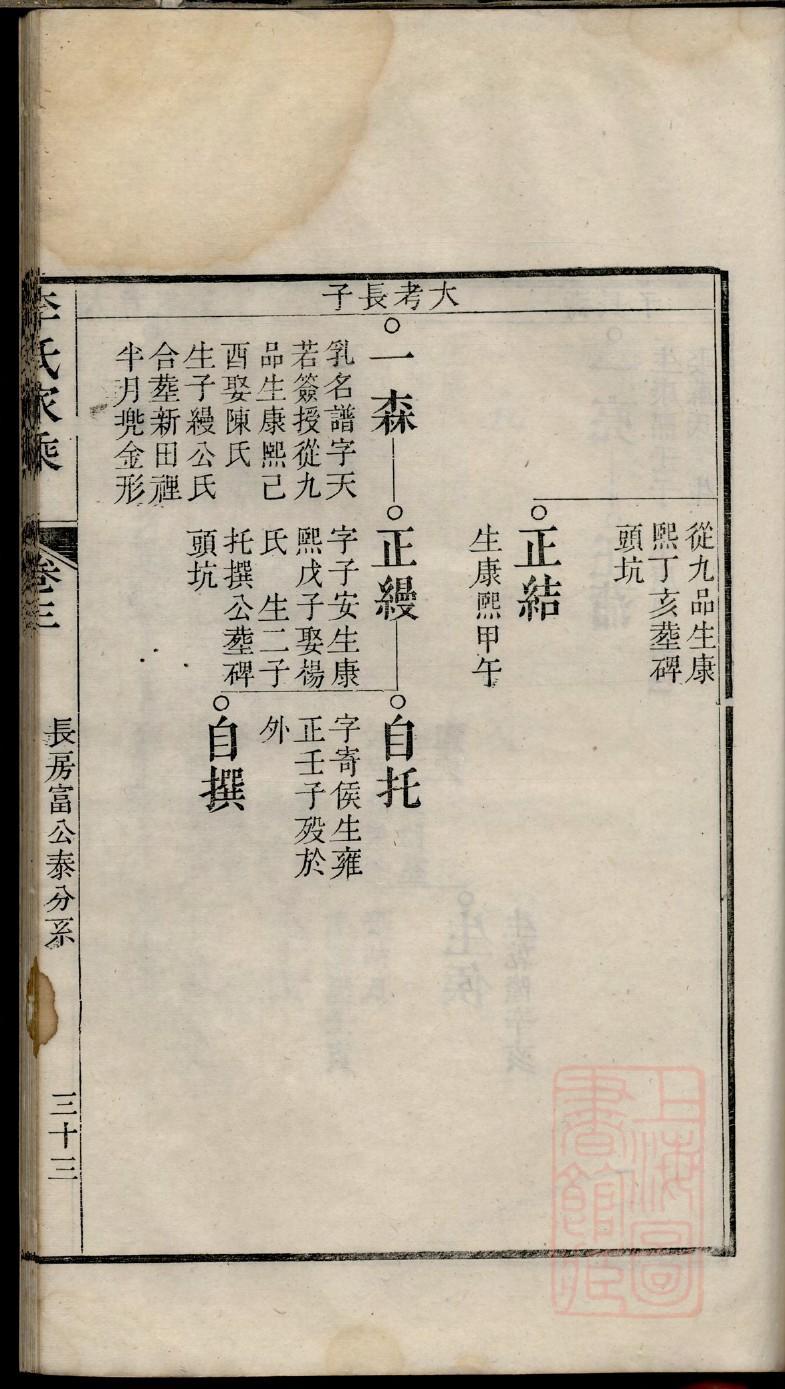 大考長子
從九品生康
熙丁亥塟碑
頭坑
正結
生康熙甲午
一森
乳名譜字天
若簽授從九
品生康熙己
酉娶陳氏
生子縵公氏
合塟新田裡
半月兠金形
正縵
字子安生康
熙戊子娶楊
氏 生二子
托撰公塟碑
頭坑
自托
字寄侯生雍
正壬子殁於
外
自撰
李氏家乘
卷三
長房富公泰分系
三十三
上海圖書館藏